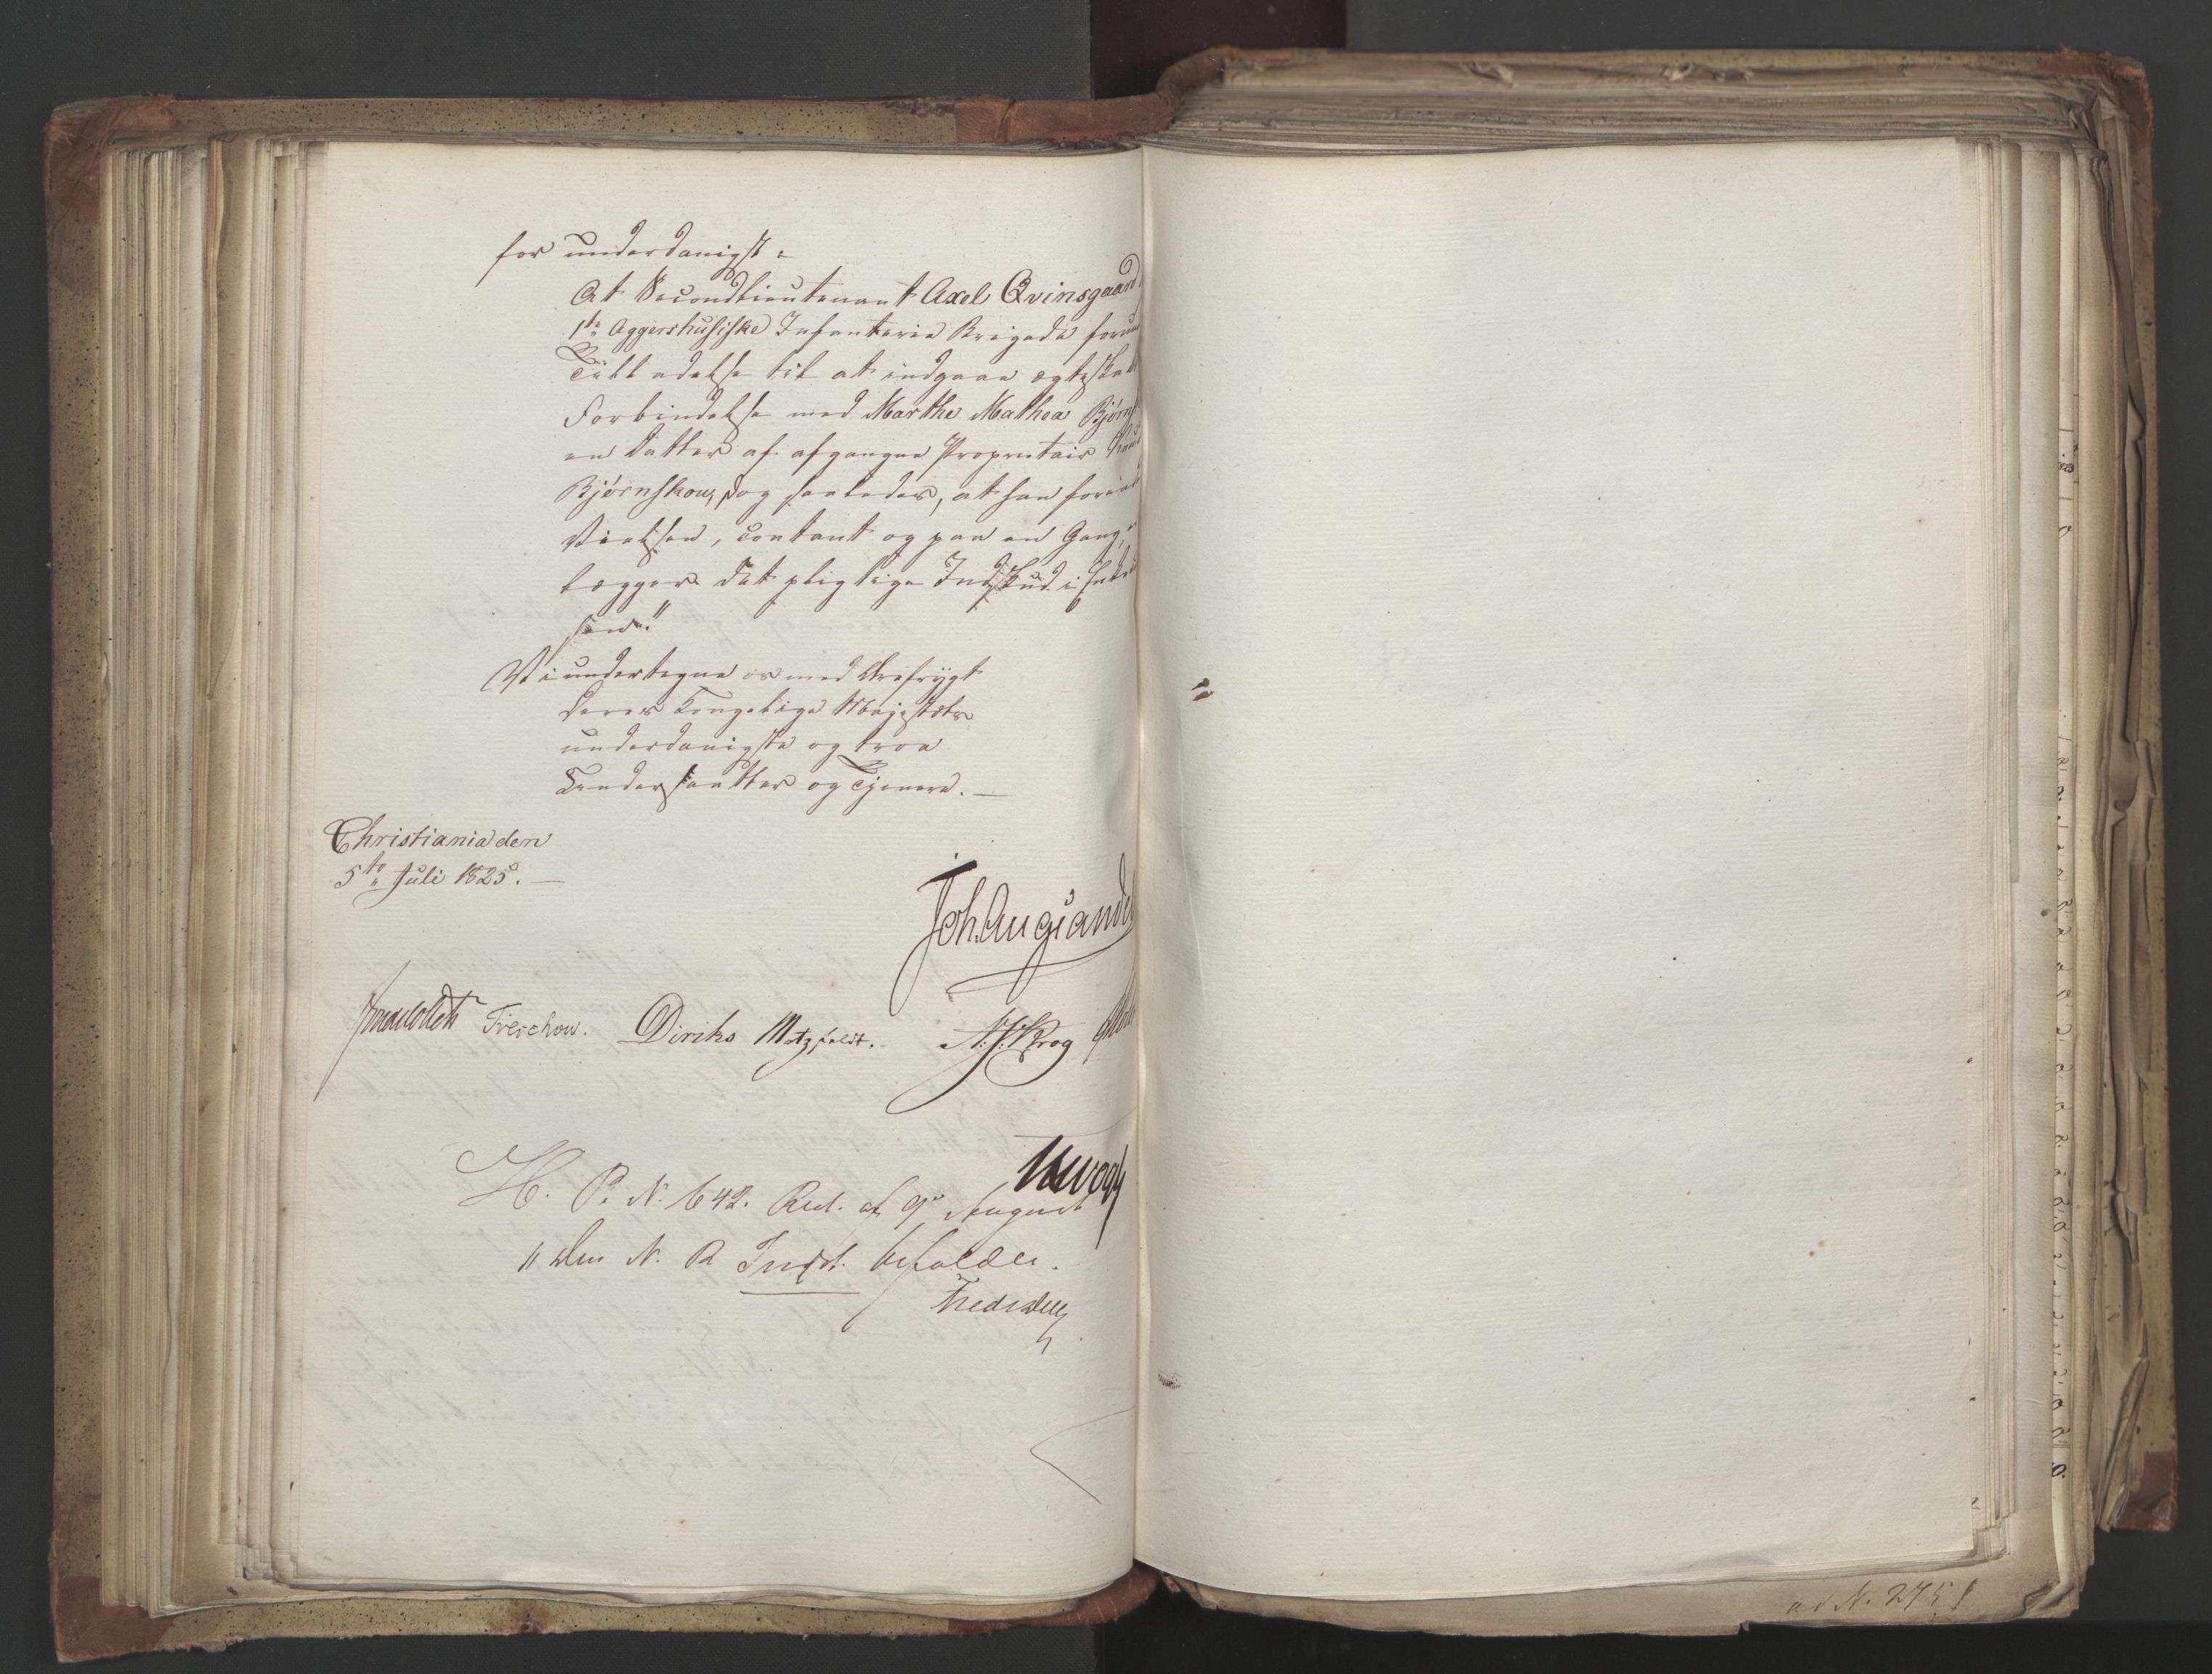 for underdanigst:
At Secondlieutenant Axel Qvinsgaard
1te Aggershusiske Infanterie Brigade forun
Tilladelse til at indgaae ægteskab
Forbindelse med Marthe Mathea Bjørnsk
en Datter af afgangne Proprietair
Bjørnskou, dog saaledes, at han forind
Vielsen, contant og paa en Gang,
lægger det pligtige Indskud i Enke
sen."
Vi undertegne os med Ærefrygt
Deres Kongelige Majestæts
underdanigste og troe
Undersaatter og Tjenere. —
Christiania den
5te Juli 1825. —
Joh. Aug. Sandel
Treschow. Diriks Motzfeldt. N. J. Krog
H. P. N. 642. Res. af 9de August
" Den N. R. Indst. bifaldes.
ad N. 2751